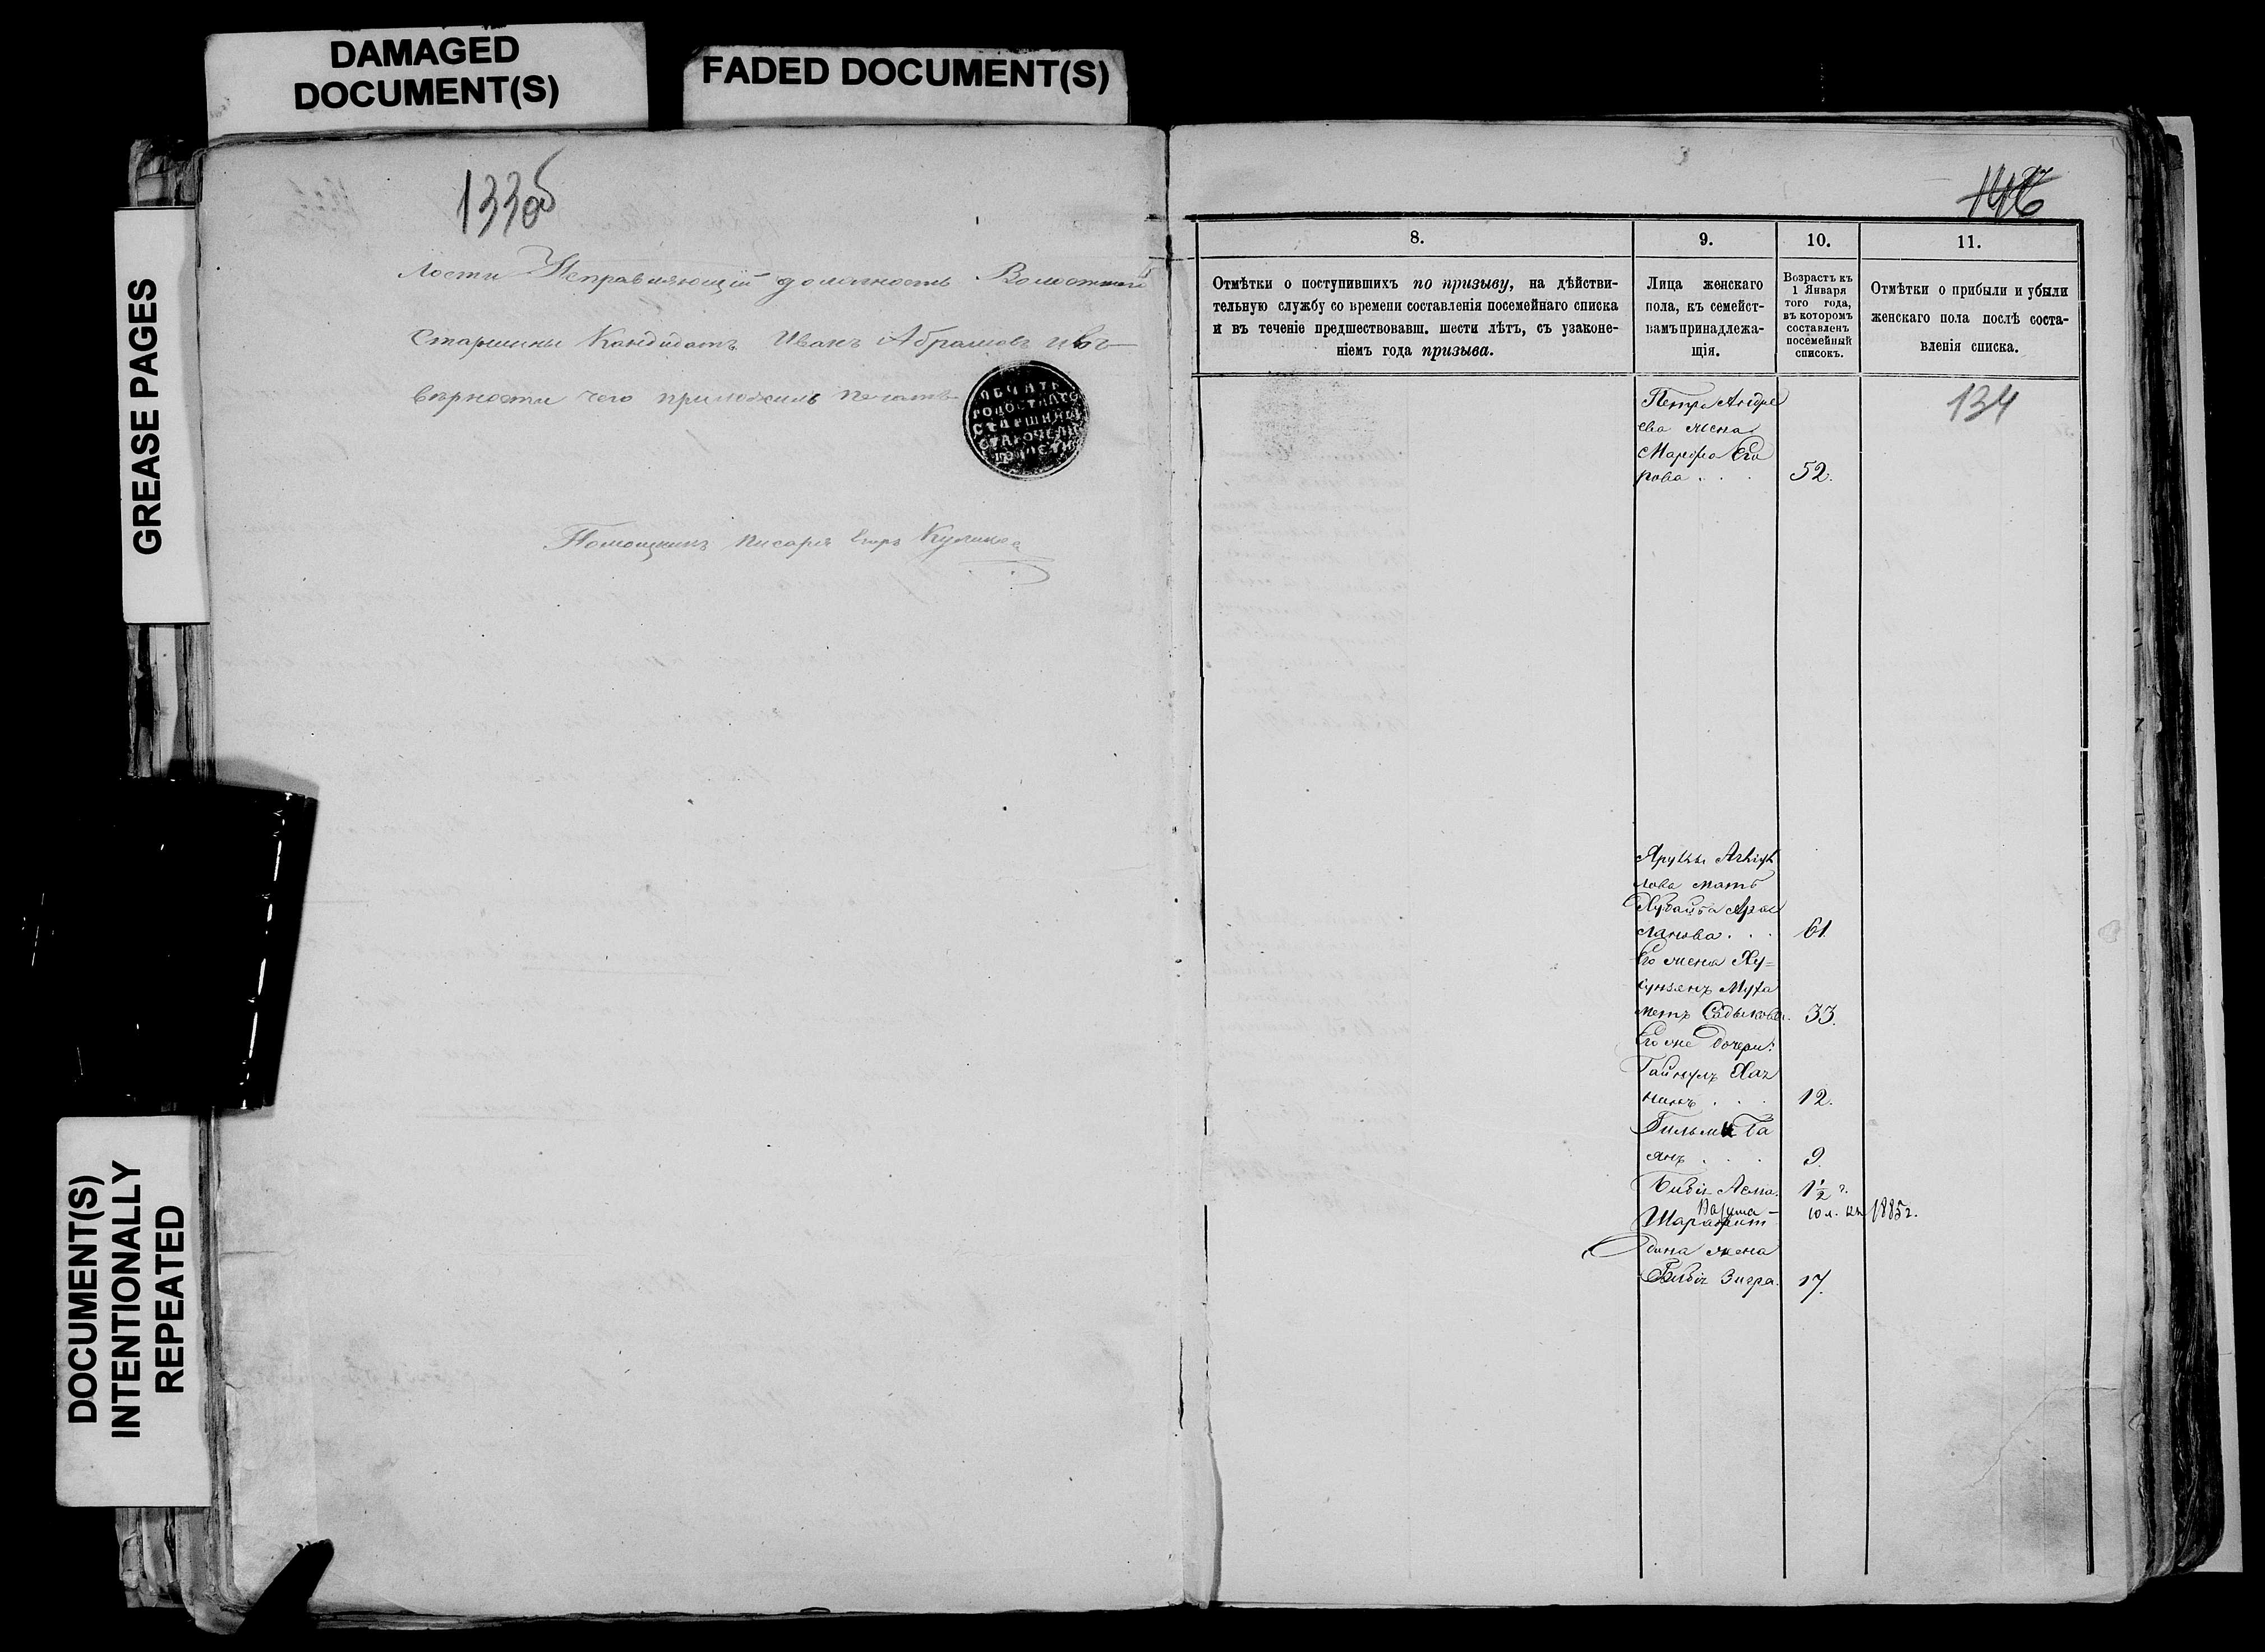 DAMAGED
DOCUMENT(S)
FADED DOCUMENT(S)
GREASE PAGES
DOCUMENT(S)
INTENTIONALLY
REPEATED
133об
лости Исправляющій должность Волостнаго
Старшины Кандидатъ Иванъ Абрамовъ и въ
вѣрности чего приложилъ печать
ПЕЧАТЬ
ВОЛОСТНАГО
СТАРШИНЫ
Помощникъ писаря Егоръ Куликов
146
8.
Отмѣтки о поступившихъ по призыву, на дѣйстви-
тельную службу со времени составленія посемейнаго списка
и въ теченіе предшествовавш. шести лѣтъ, съ узаконе-
ніемъ года призыва.
9.
Лица женскаго
пола, къ семейст-
вамъ принадлежа-
щія.
10.
Возрастъ къ
1 Января
того года,
въ которомъ
составленъ
посемейный
списокъ.
11.
Отмѣтки о прибыли и убыли
женскаго пола послѣ соста-
вленія списка.
134
Петра Андре
ева жена
Марфа Его
рова . . . 52.
лова мать
ланова . . . 61.
Его жена Ху=
Муха
метъ Садыкова. 33.
Его же дочери:
нанъ . . . 12.
янъ . . . 9.
Биби Асма. 1½ г.
10 л. къ 1885 г.
Шарафут
дина жена
Биби Зигра. 17.